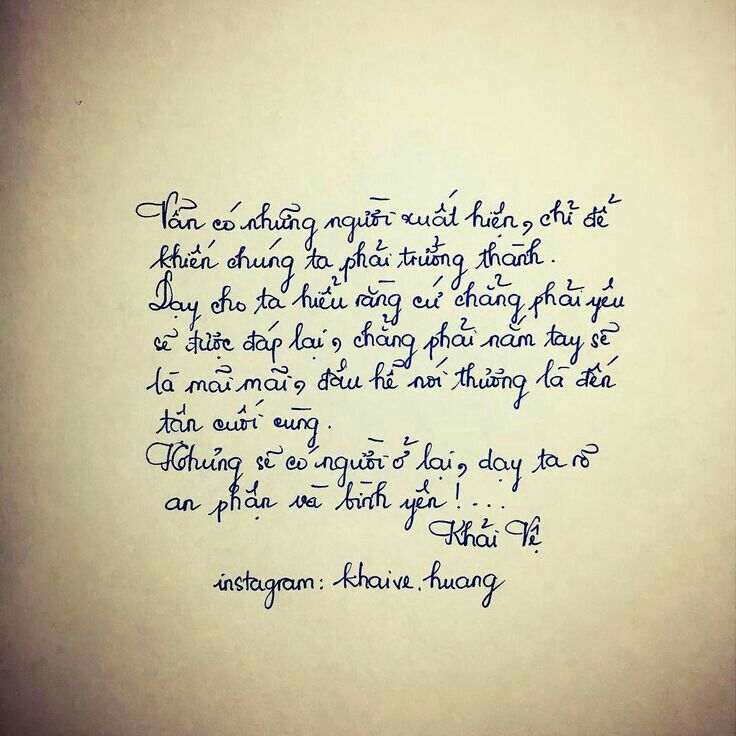 Vẫn có những người xuất hiện, chỉ để
khiến chúng ta phải trưởng thành.
Dạy cho ta hiểu rằng cứ chẳng phải yêu
sẽ được đáp lại, chẳng phải nắm tay sẽ
là mãi mãi, đâu hề nói thương là đến
tận cuối cùng.
Nhưng sẽ có người ở lại, dạy ta rõ
an phận và bình yên!...
Khải Vệ
instagram: khaive.huang